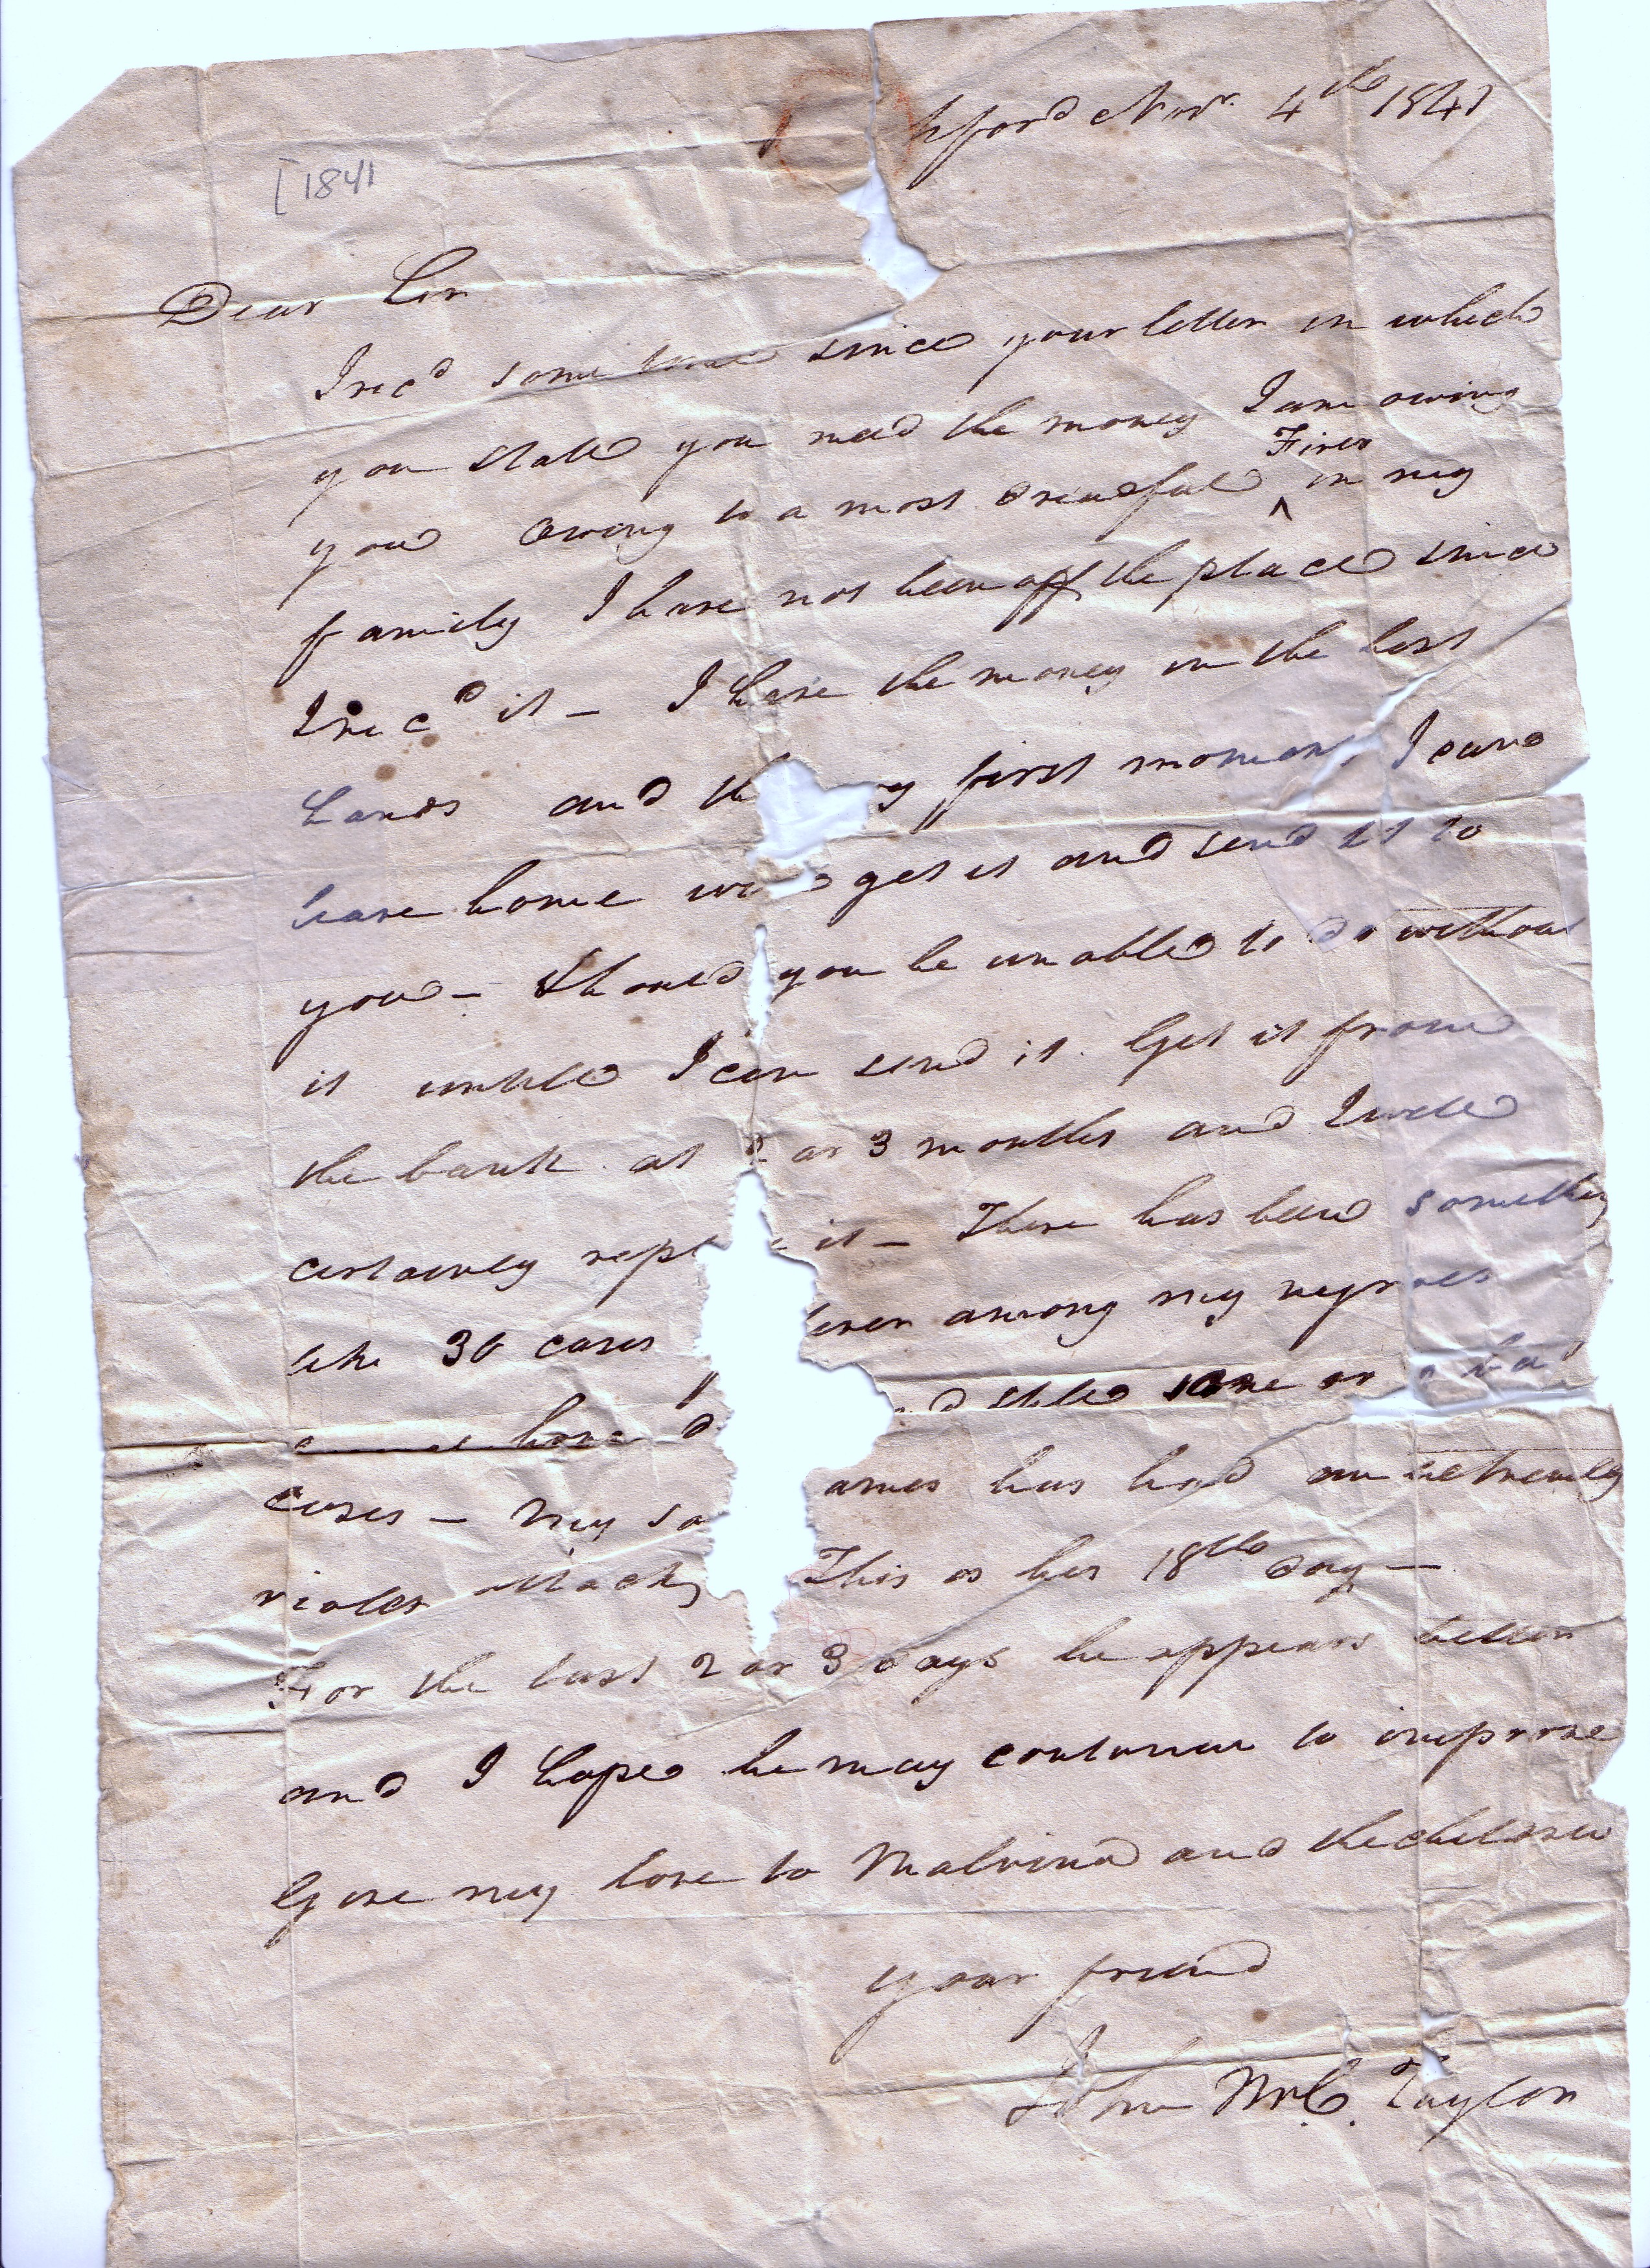 Novr. 4th 1841
[1841
Dear Sir
I recd some time since your letter in which
you state you need the money I am owing
you Owing to a most dreadful Fever in my
family I have not been off the place since
I recd it – I have the money in the best
hands and th y first moment I can
leave home w get it and send it to
you – Should you be unable to do without
it until I can send it. Get it from
the bank at 2 or 3 months and I will
certainly repl it – There has been something
like 30 cases fever among my negroes
have d d still some or bad
cases – My so ames has had an extremely
violet attack, This is his 18th day –
For the last 2 or 3 days he appears better
and I hope he may continue to improve
Give my love to Malvina and the children
your friend
John McC. Taylor